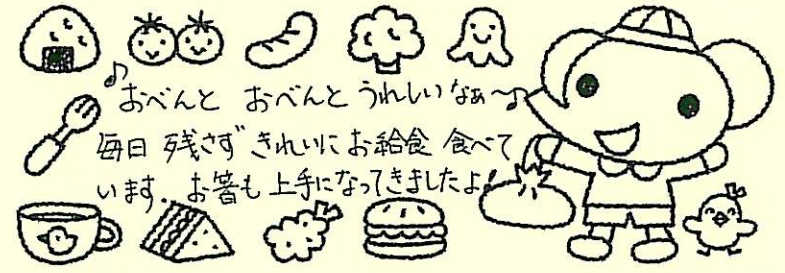 ♪おべんと おべんと うれしいなぁ〜♪
毎日 残さず きれいに お給食 食べて
います。お箸も 上手になってきましたよ!